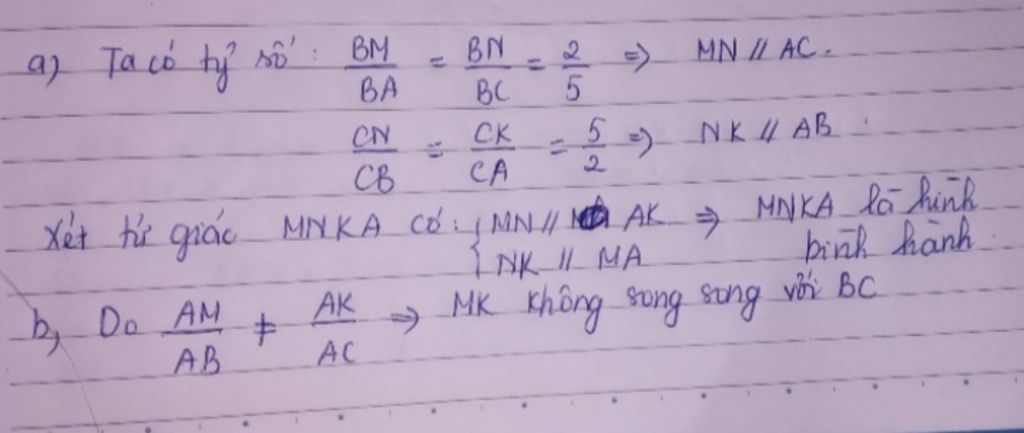 a) Ta có tỷ số: BM/BA = BN/BC = 2/5 => MN // AC.
CN/CB = CK/CA = 5/2 => NK // AB.
Xét tứ giác MNKA có: { MN // AK => MNKA là hình
NK // MA bình hành.
b, Do AM/AB ≠ AK/AC => MK không song song với BC